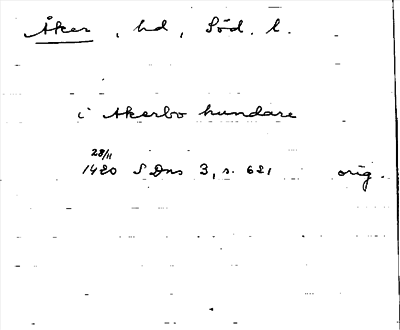 Åker, hd, Söd. l.
i Akerbo hundare
28/11
1420 SDns 3, s. 621 orig.